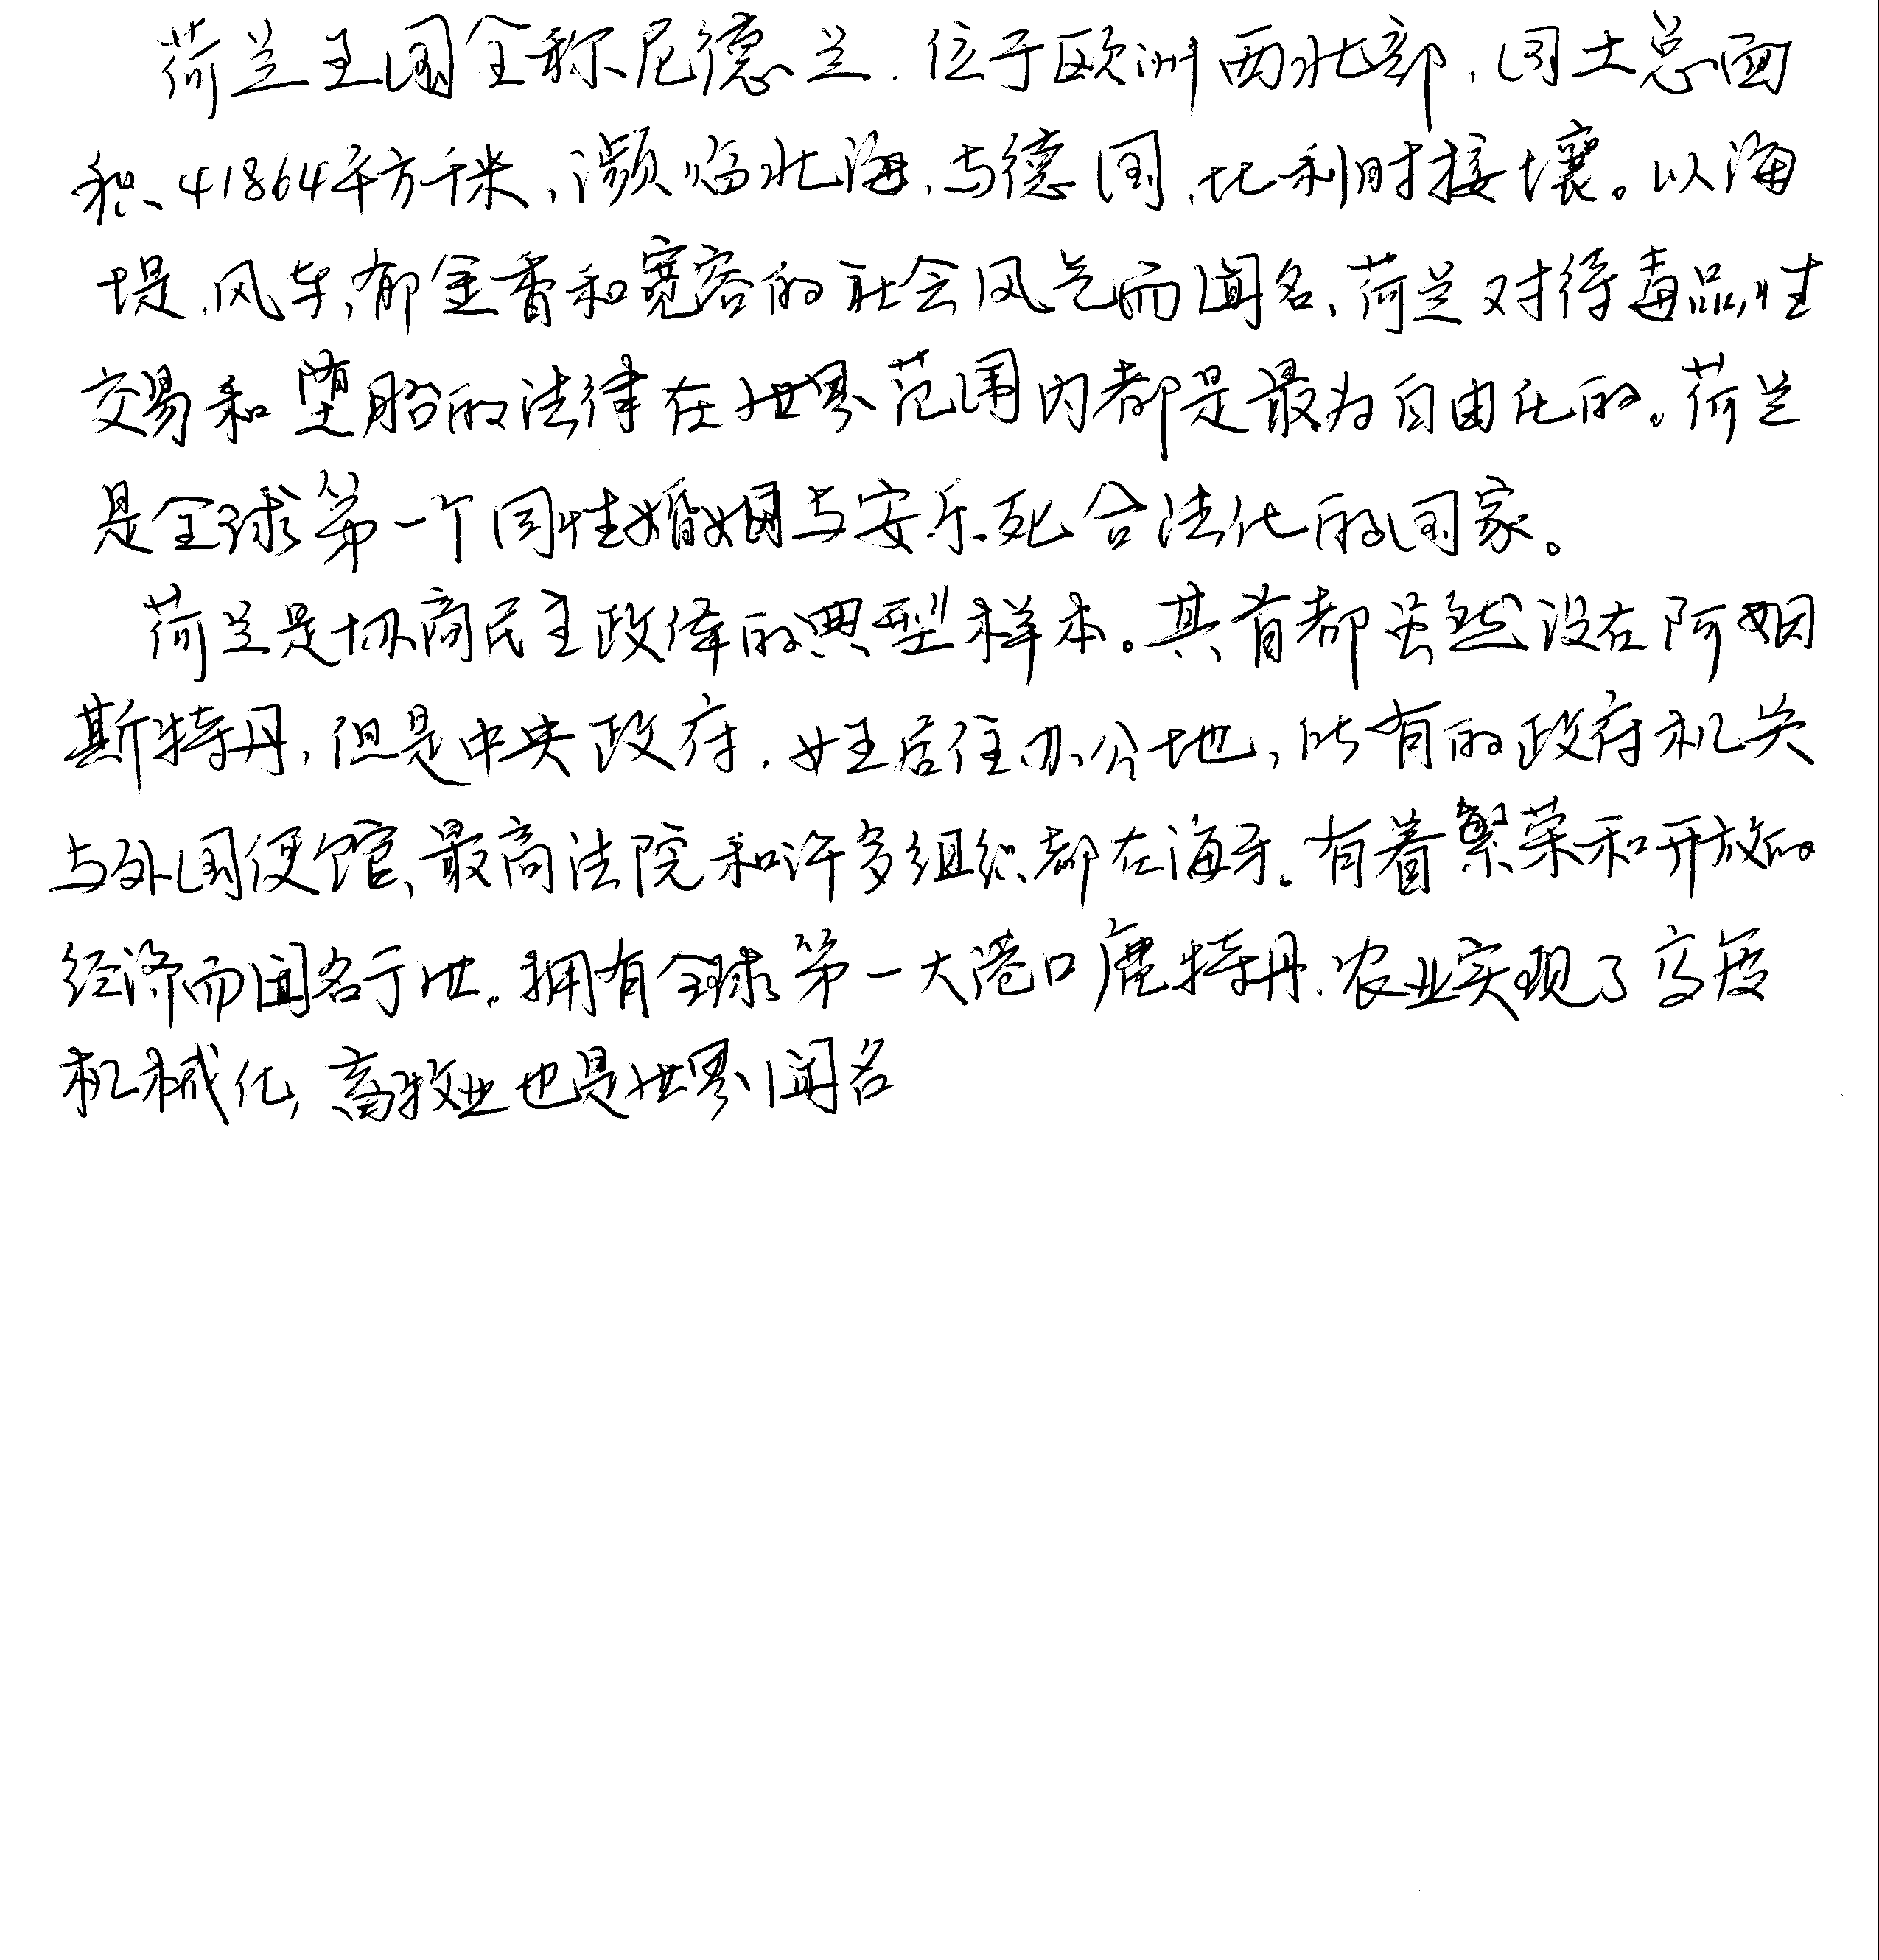 荷兰王国全称尼德兰，位于欧洲西北部，国土总面
积、41864平方千米，濒临北海，与德国，比利时接壤。以海
堤，风车，郁金香和宽容的社会风气而闻名，荷兰对待毒品，性
交易和堕胎的法律在世界范围内都是最为自由化的。荷兰
是全球第一个同性婚姻与安乐死合法化的国家。
荷兰是协商民主政体的典型样本。其首都虽然设在阿姆
斯特丹，但是中央政府，女王居住办公地，所有的政府机关
与外国使馆、最高法院和许多组织都在海牙。有着繁荣和开放的
经济而闻名于世。拥有全球第一大港口鹿特丹，农业实现了高度
机械化，畜牧业也是世界闻名